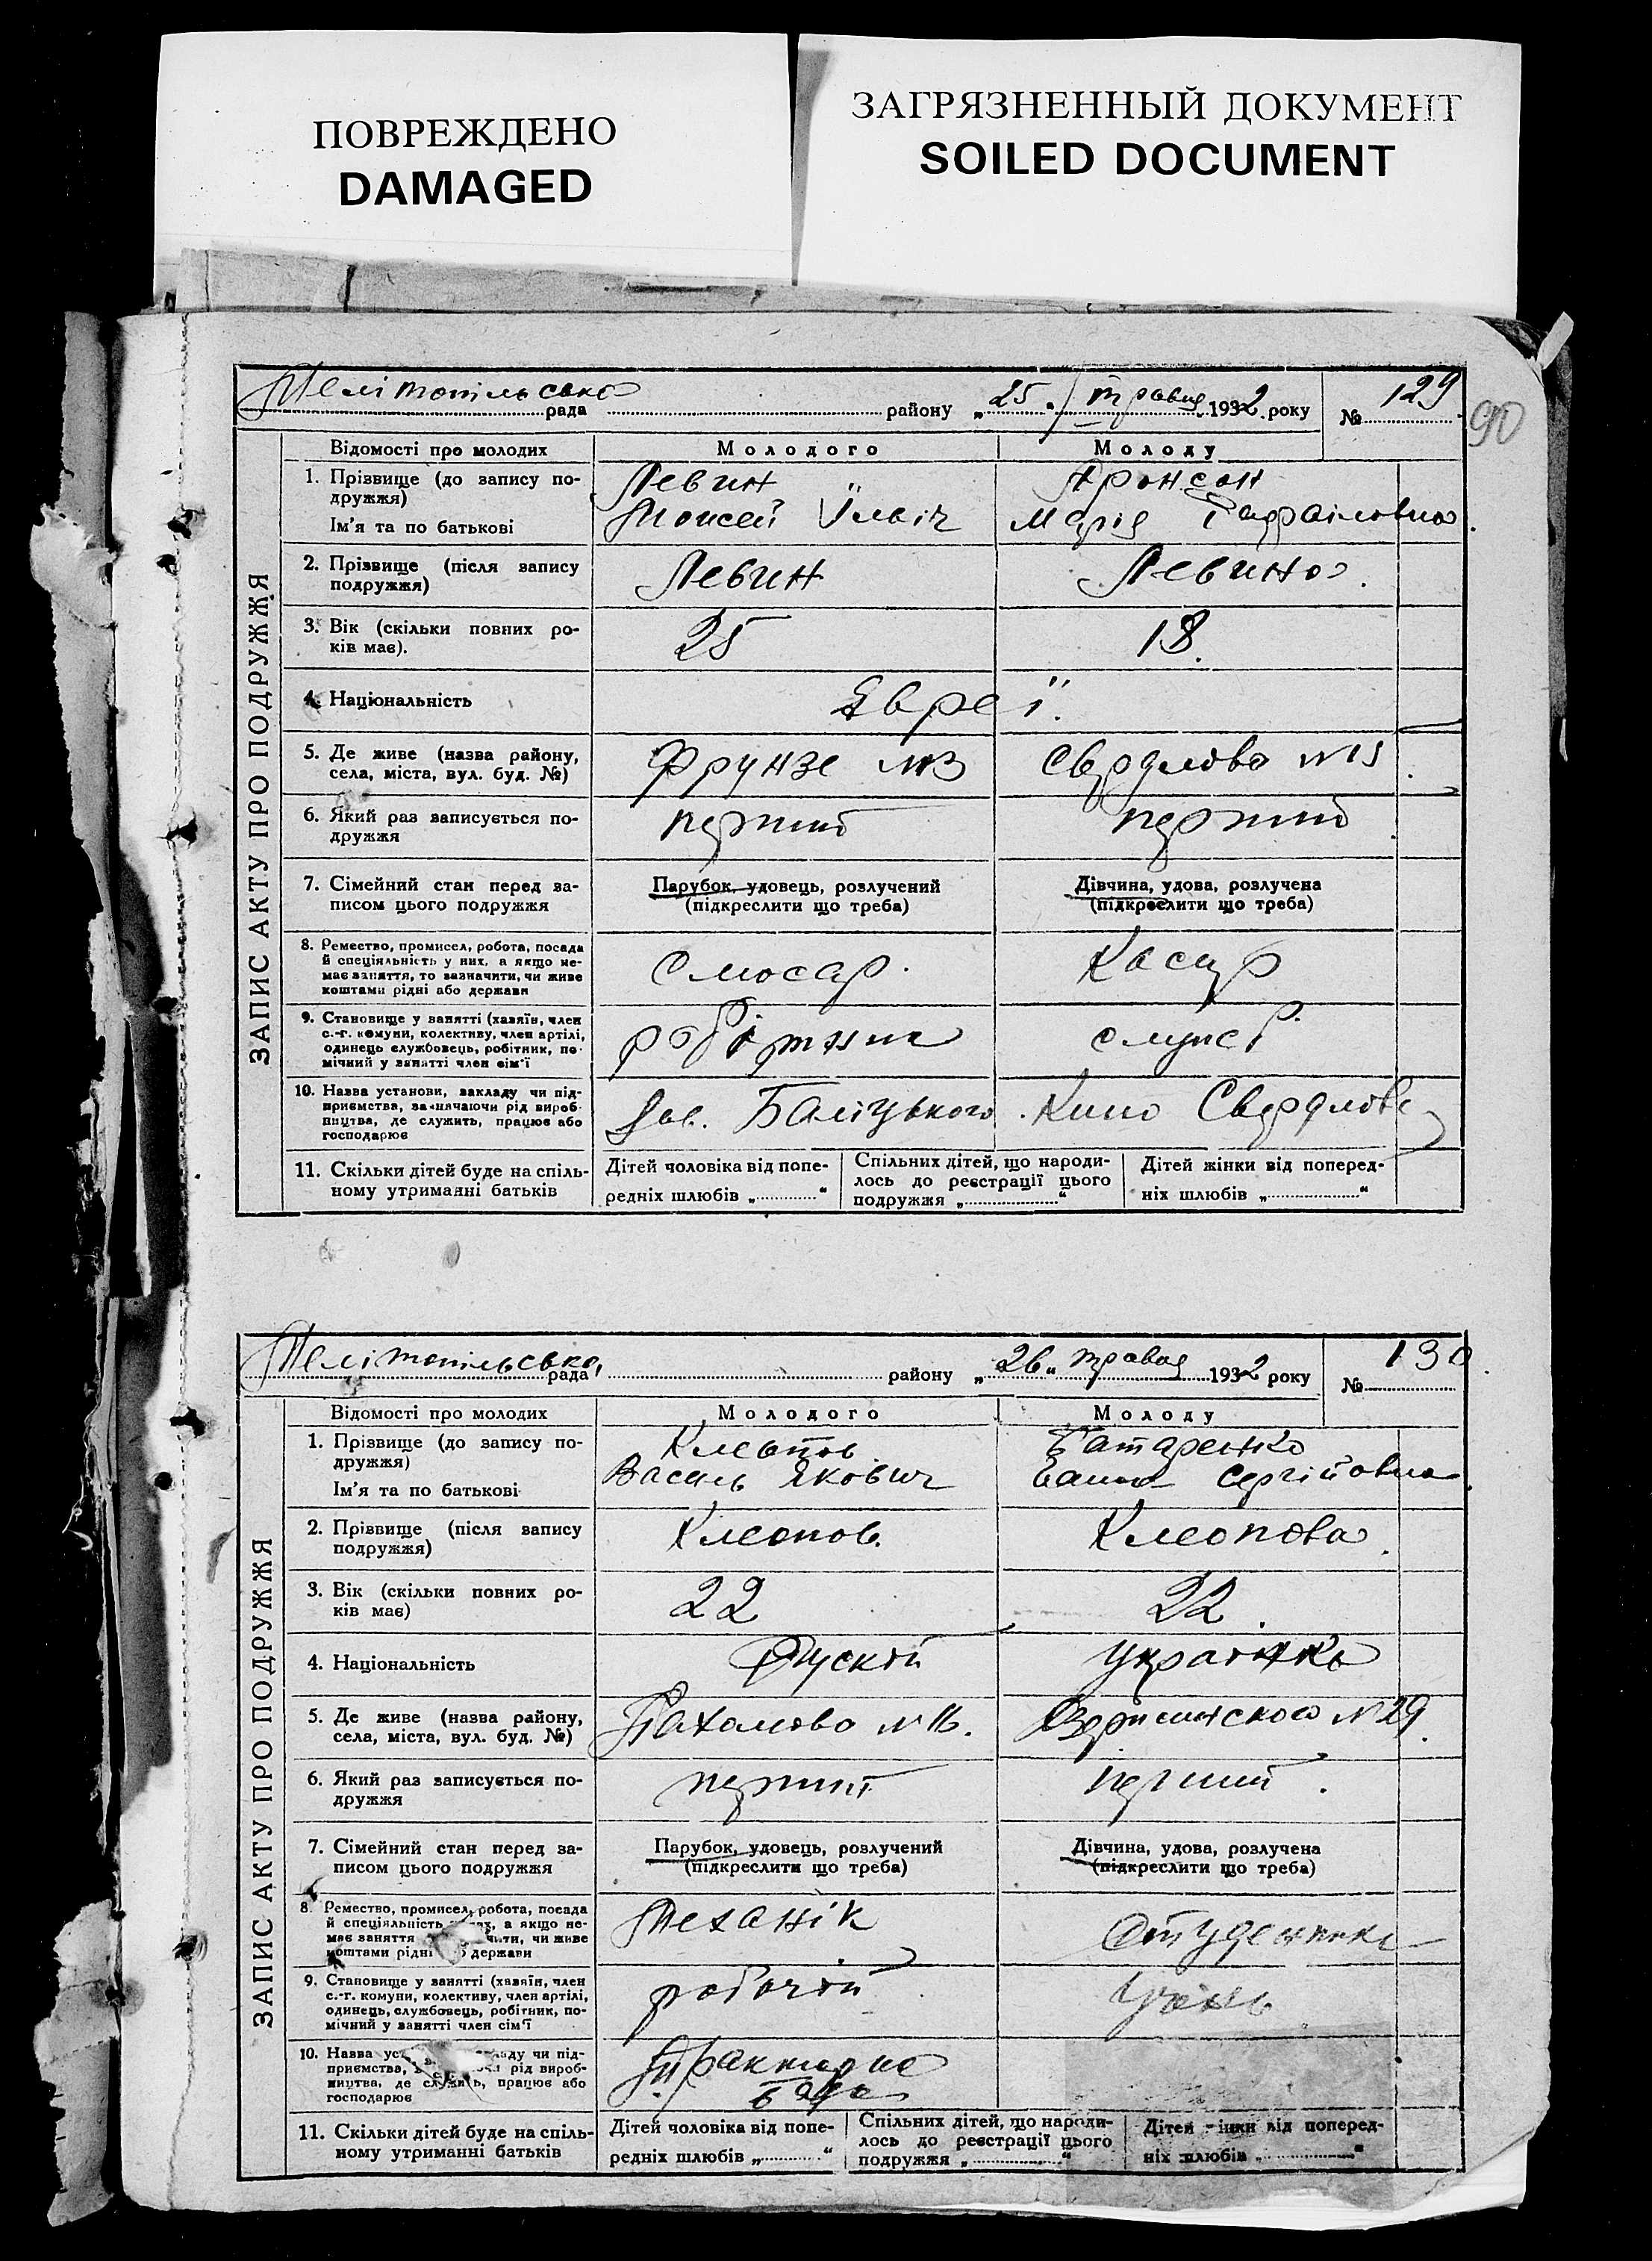 ПОВРЕЖДЕНО
DAMAGED
ЗАГРЯЗНЕННЫЙ ДОКУМЕНТ
SOILED DOCUMENT
90
ЗАПИС АКТУ ПРО ПОДРУЖЖЯ
Мелітопільська рада району „25“ травня 1932 року № 129
Відомості про молодих Молодого Молоду
1. Прізвище (до запису по-
дружжя)
Левин Аронсон
Ім'я та по батькові
Мойсей Ільіч Марія Рафаіловна
2. Прізвище (після запису
подружжя)
Левин Левина
3. Вік (скільки повних ро-
ків має).
25 18
4. Національність
Євреї
5. Де живе (назва району,
села, міста, вул. буд. №)
Фрунзе №3 Свердлова №15
6. Який раз записується по-
дружжя
перший перший
7. Сімейний стан перед за-
писом цього подружжя
Парубок, удовець, розлучений
(підкреслити що треба)
Дівчина, удова, розлучена
(підкреслити що треба)
8. Ремество, промисел, робота, посада
й спеціяльність у них, а якщо не-
має заняття, то зазначити, чи живе
коштами рідні або держави
слюсар Касир
9. Становище у занятті (хазяїн, член
с.-г. комуни, колективу, член артілі,
одинець службовець, робітник, по-
мічний у занятті член сім'ї
робітник службов
10. Назва установи, закладу чи під-
приємства, зазначаючи рід вироб-
ництва, де служить, працює або
господарює
Зав. Баліцького Кино Свердлова
11. Скільки дітей буде на спіль-
ному утриманні батьків
Дітей чоловіка від попе-
редніх шлюбів „ “
Спільних дітей, що народи-
лось до реєстрації цього
подружжя „ “
Дітей жінки від поперед-
ніх шлюбів „ “
ЗАПИС АКТУ ПРО ПОДРУЖЖЯ
Мелітопільська рада району „26“ травня 1932 року № 130
Відомості про молодих Молодого Молоду
1. Прізвище (до запису по-
дружжя)
Клеопов Батаренко
Ім'я та по батькові
Василь Якович Сергійовна
2. Прізвище (після запису
подружжя)
Клеопов Клеопова
3. Вік (скільки повних ро-
ків має)
22 22
4. Національність
Руский Українка
5. Де живе (назва району,
села, міста, вул. буд. №)
Пахомова №16. Дзержинского №29
6. Який раз записується по-
дружжя
перший перший
7. Сімейний стан перед за-
писом цього подружжя
Парубок, удовець, розлучений
(підкреслити що треба)
Дівчина, удова, розлучена
(підкреслити що треба)
8. Ремество, промисел, робота, посада
й спеціяльність а якщо не-
має заняття чи живе
коштами рідні держави
Механік Студентка
9. Становище у занятті (хазяїн, член
с.-г. комуни, колективу, член артілі,
одинець, службовець, робітник, по-
мічний у занятті член сім'ї
робочий Учень
10. Назва чи під-
приємства, рід вироб-
ництва, де служить, працює або
господарює
база
11. Скільки дітей буде на спіль-
ному утриманні батьків
Дітей чоловіка від попе-
редніх шлюбів „ “
Спільних дітей, що народи-
лось до реєстрації цього
подружжя „ “
Дітей жінки від поперед-
ніх шлюбів „ “